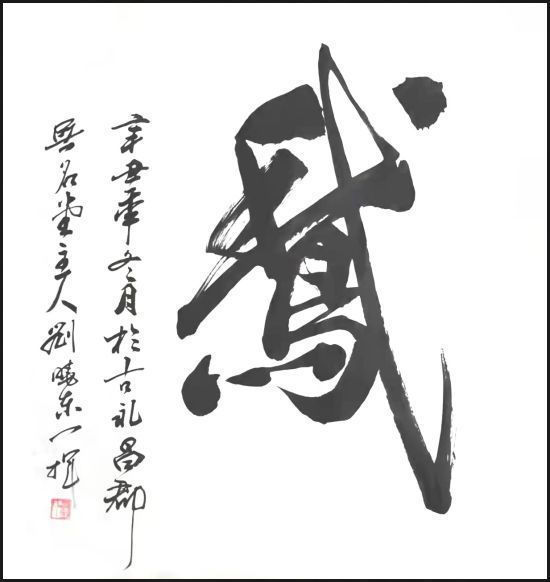 鵞
辛丑年冬月於古礼昌郡
無名堂主人劉曉東一揮